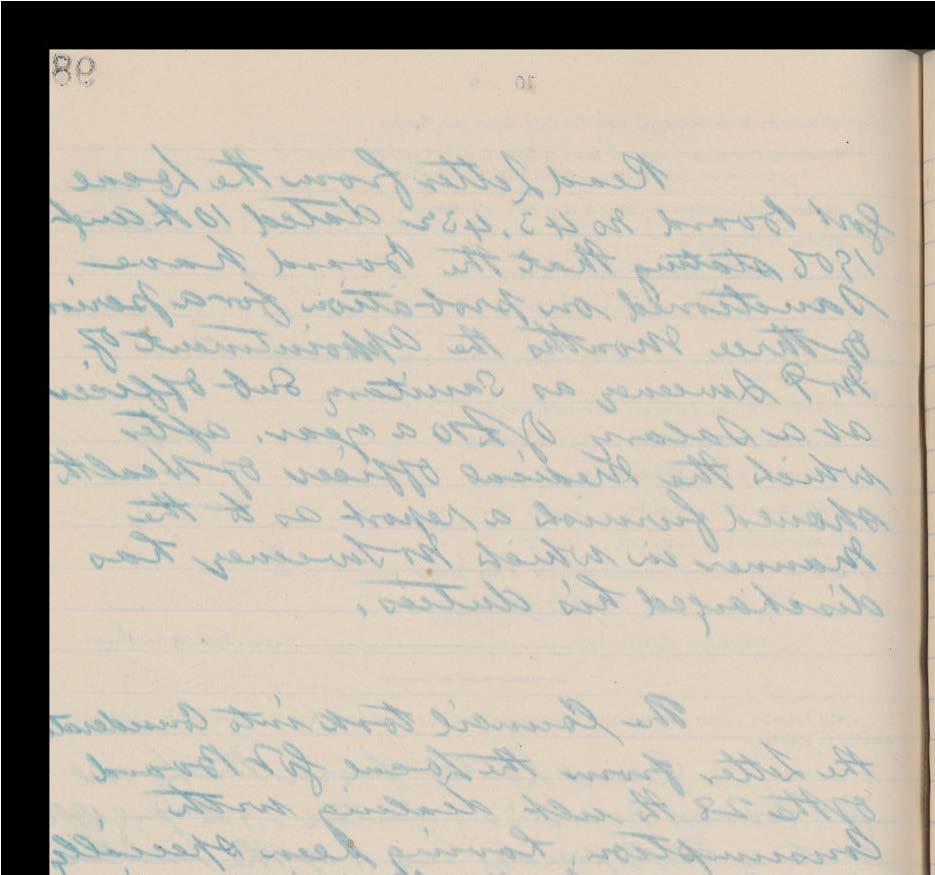 86
Read Letter from the Local
Govt Board No 43,432 dated 10th Aug
1906 stating that the Board have
Sanctioned on probation for a period
of three Months the appointment of
Mr P Sweeney as Sanitary Sub Officer
at a Salary of £10 a year, after
which the Medical Officer of Health
should furnish a report as to the
Manner in which Mr Sweeney has
discharged his duties.
The Council took into Considerat
the Letter from the Local Govt Board
of the 28th ult dealing with
Consumption, having been specially